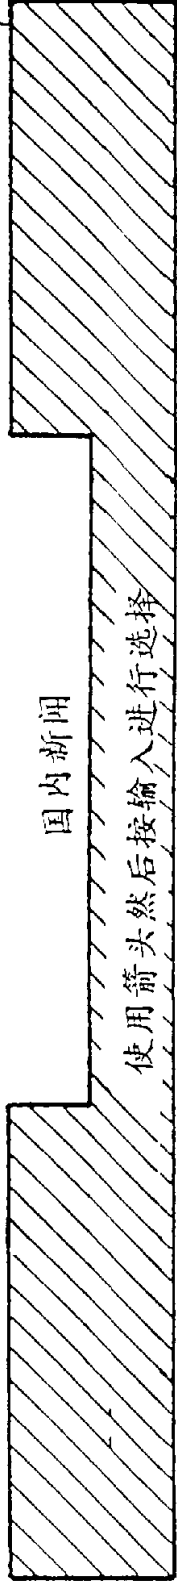 国内新闻
使用箭头然后按输入进行选择